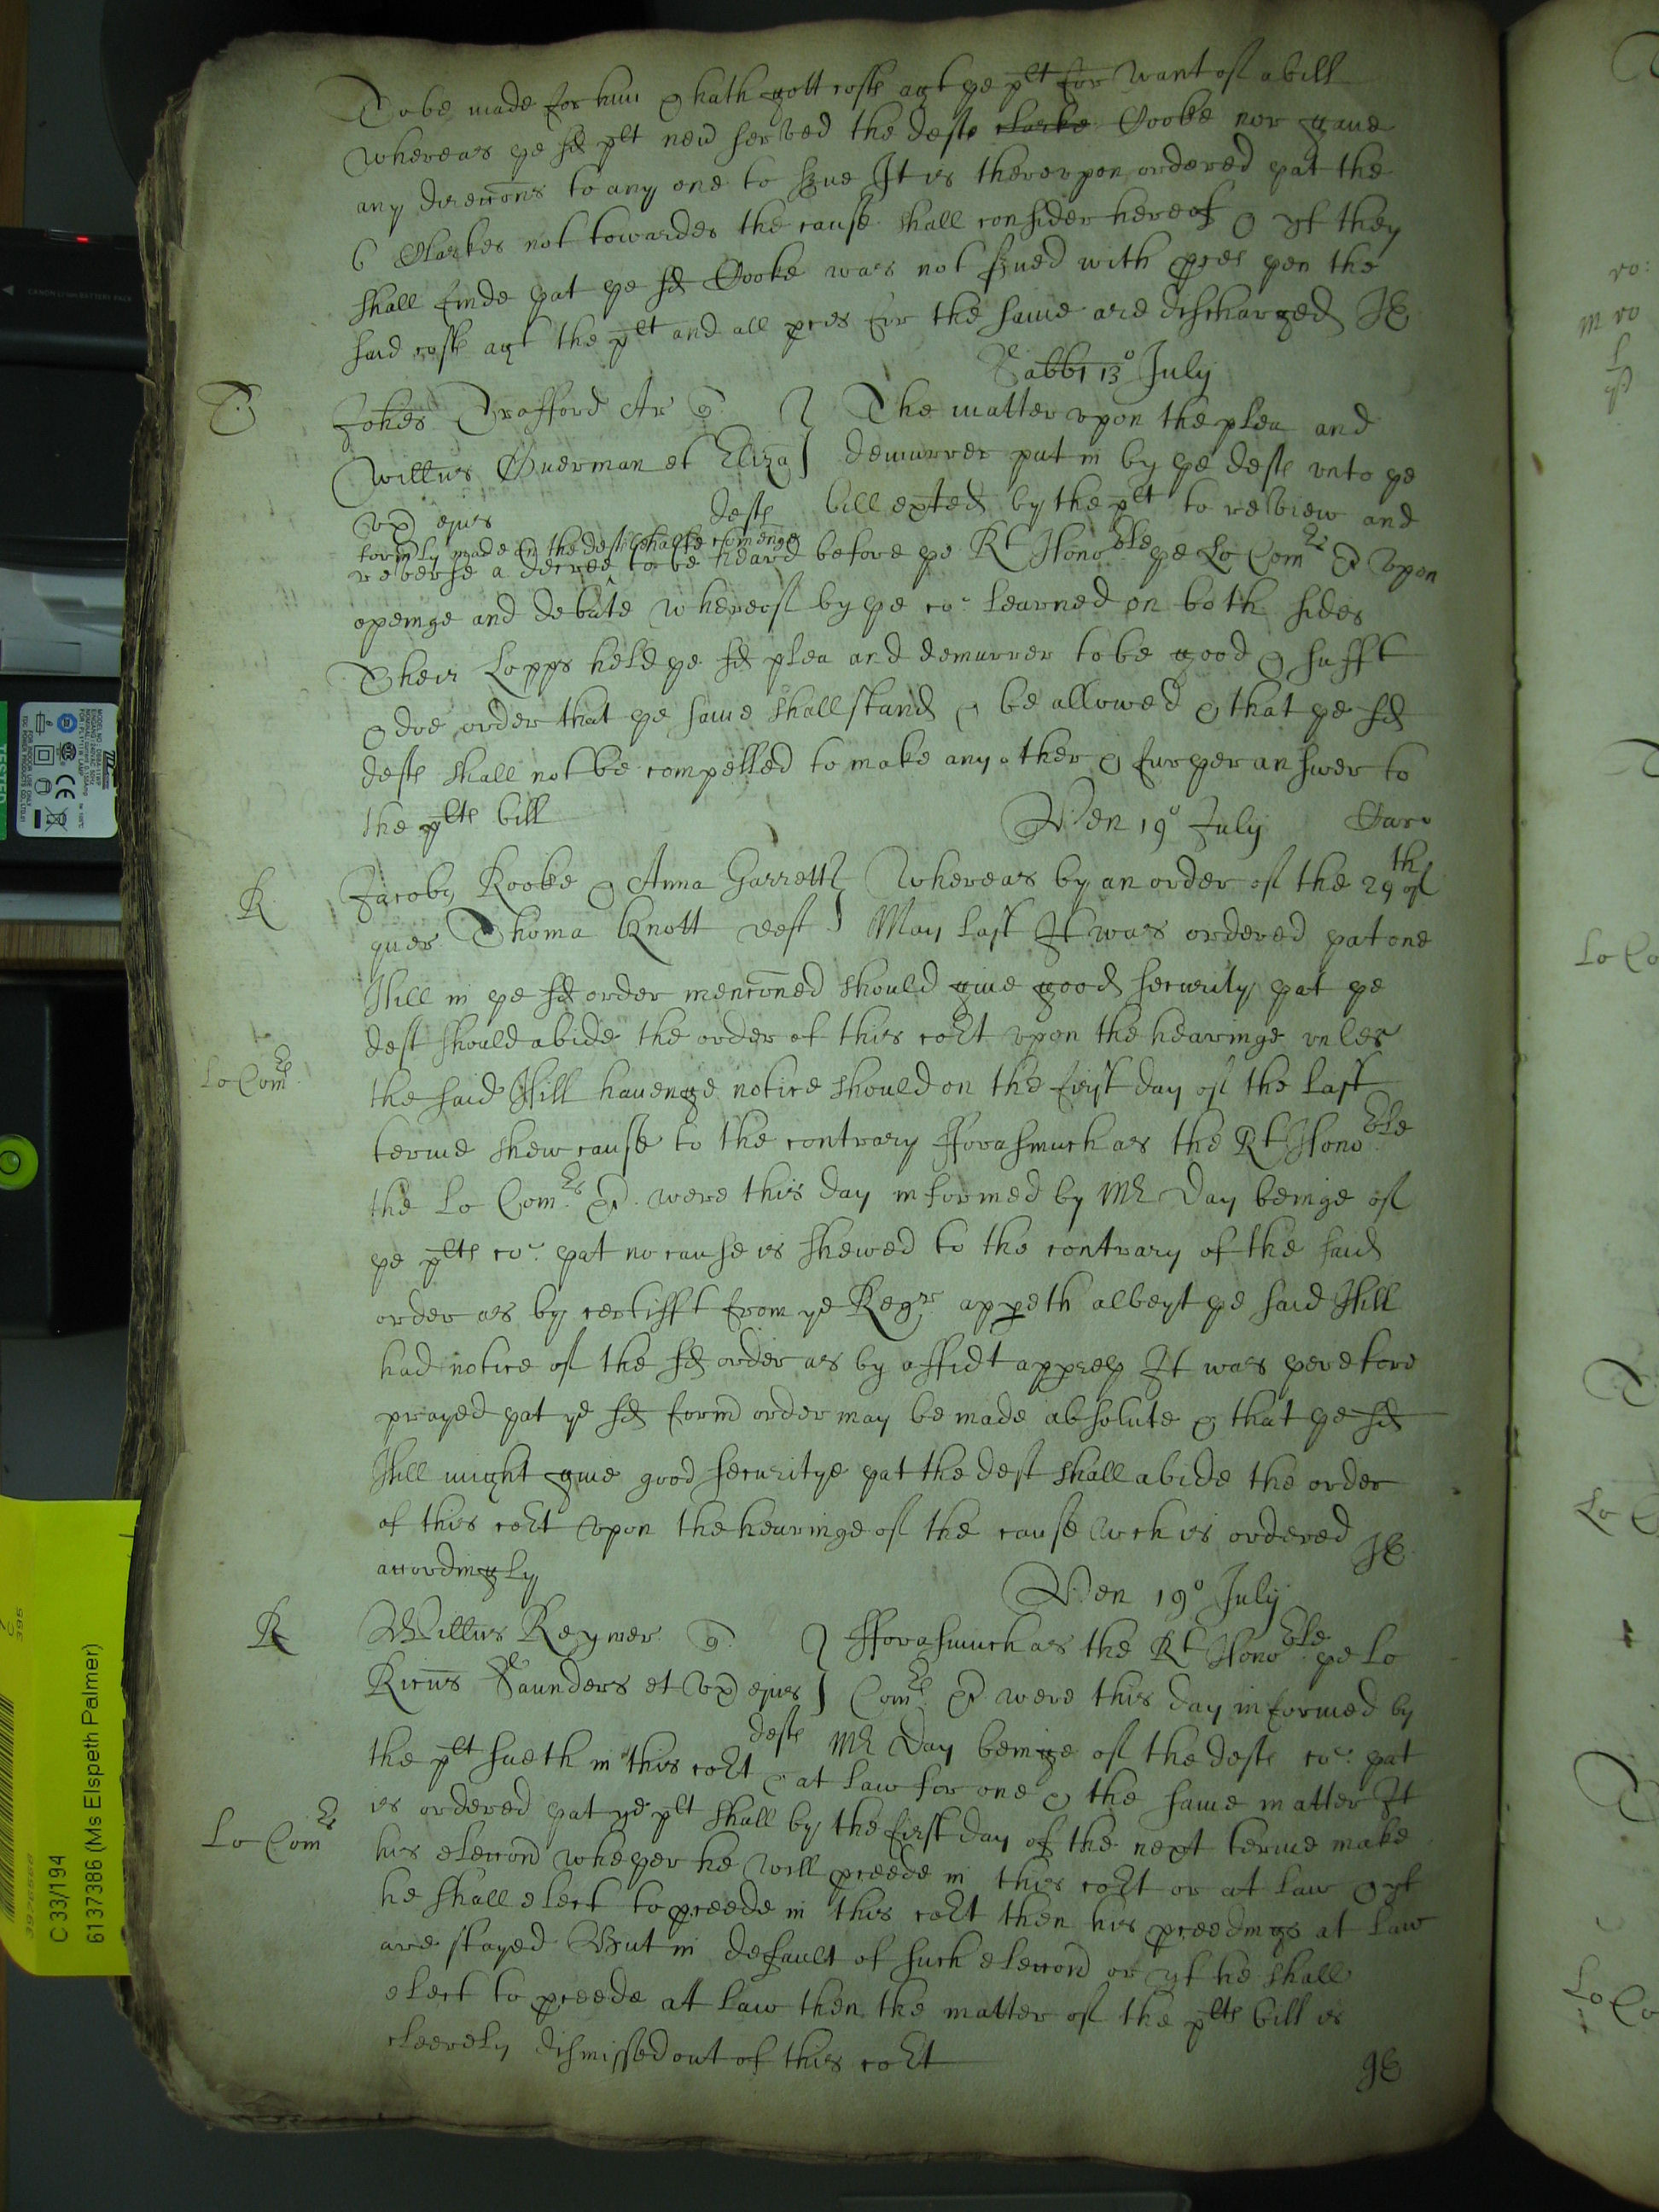 To be made for him & hath gott costs agt ye plt for want of a bill
whereas ye sd plt nevr served the deft clarke Cooke nor gave
any direccons to any one to sue It is thereupon ordered yat the
6 Clarkes not towardes the cause shall consider hereof & yf they
shall finde yat ye sd Cooke was not sued with pces yen the
said costs agt the plt and all pces for the same are discharged JE
Sabbi 13° July
T
Johes Trafford Ar q
The matter upon the plea and
Willus Overman et Eliza
demurrer put in by ye defts unto ye
ux ejus
defts
bill exted by the plt to review and
formly made in the defts behalfe comeinge
reverse a decree to be heard before ye Rt Honoble ye Lo Comrs &c Upon
openinge and debate whereof by ye co: learned on both sides
Their Lopps held ye sd plea and demurrer to be good & sufft
& doe order that ye same shall stand & be allowed & that ye sd
defts shall not be compelled to make any other & furyer answer to
the plts bill
Ven 19° July
R
Jacob, Rooke & Anna Garrett
Whereas by an order of the 29th of
quer Thoma Knott deft
May last It was ordered yat one
Hill in ye sd order mencioned should give good security yat ye
deft should abide the order of this cort upon the hearinge unles
Lo Comrs
the said Hill havenge notice should on the first day of the last
terme shew cause to the contrary fforasmuch as the Rt Honoble
the Lo Comrs &c. were this day informed by Mr Day beinge of
ye plts co: yat no cause is shewed to the contrary of the said
order as by certifft from ye Regr appeth albeyt ye said Hill
had notice of the sd order as by affidt appeey It was yerefore
prayed yat ye sd formr order may be made absolute & that ye sd
Hill might give good securitye yat the deft shall abide the order
of this cort upon the hearinge of the cause wch is ordered
accordingly
JE
Ven 19° July
R
Willus Reymer q
fforasmuch as the Rt Honoble ye Lo
Ricus Saunders et ux ejus
Comrs &c were this day informed by
defts
Mr Day beinge of the defts co: yat
the plt sueth in this cort & at law for one & the same matter It
Lo Comrs
is ordered yat ye plt shall by the first day of the next terme make
his eleccon wheyer he will pceede in this cort or at law & yf
he shall elect to pceede in this cort then his pceedings at law
are stayed But in default of such eleccon or yf he shall
elect to pceede at law then the matter of the plts bill is
cleerely dismissed out of this cort
JE
C 33/194
6137386 (Ms Elspeth Palmer)